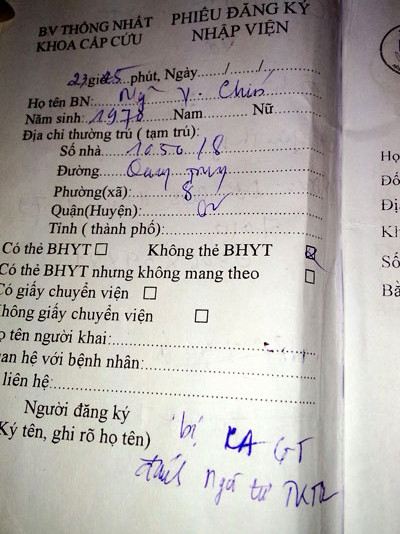 BV THỐNG NHẤT
KHOA CẤP CỨU
PHIẾU ĐĂNG KÝ
NHẬP VIỆN
23 giờ 25 phút, Ngày....../....../......
Họ tên BN: Ng~ V. Chín
Năm sinh: 1978 Nam Nữ
Địa chỉ thường trú ( tạm trú):
Số nhà 1050/8
Đường Quang Trung
Phường(xã): 8
Quận(Huyện): GV
Tỉnh ( thành phố):
Có thẻ BHYT ☐ Không thẻ BHYT ☒
Có thẻ BHYT nhưng không mang theo ☐
Có giấy chuyển viện ☐
Không giấy chuyển viện ☐
ọ tên người khai:
uan hệ với bệnh nhân:
liên hệ:
Người đăng ký
Ký tên, ghi rõ họ tên)
bị CA GT
đánh Ngã tư
Họ
Đố
Đị
Kh
Số
Bằ